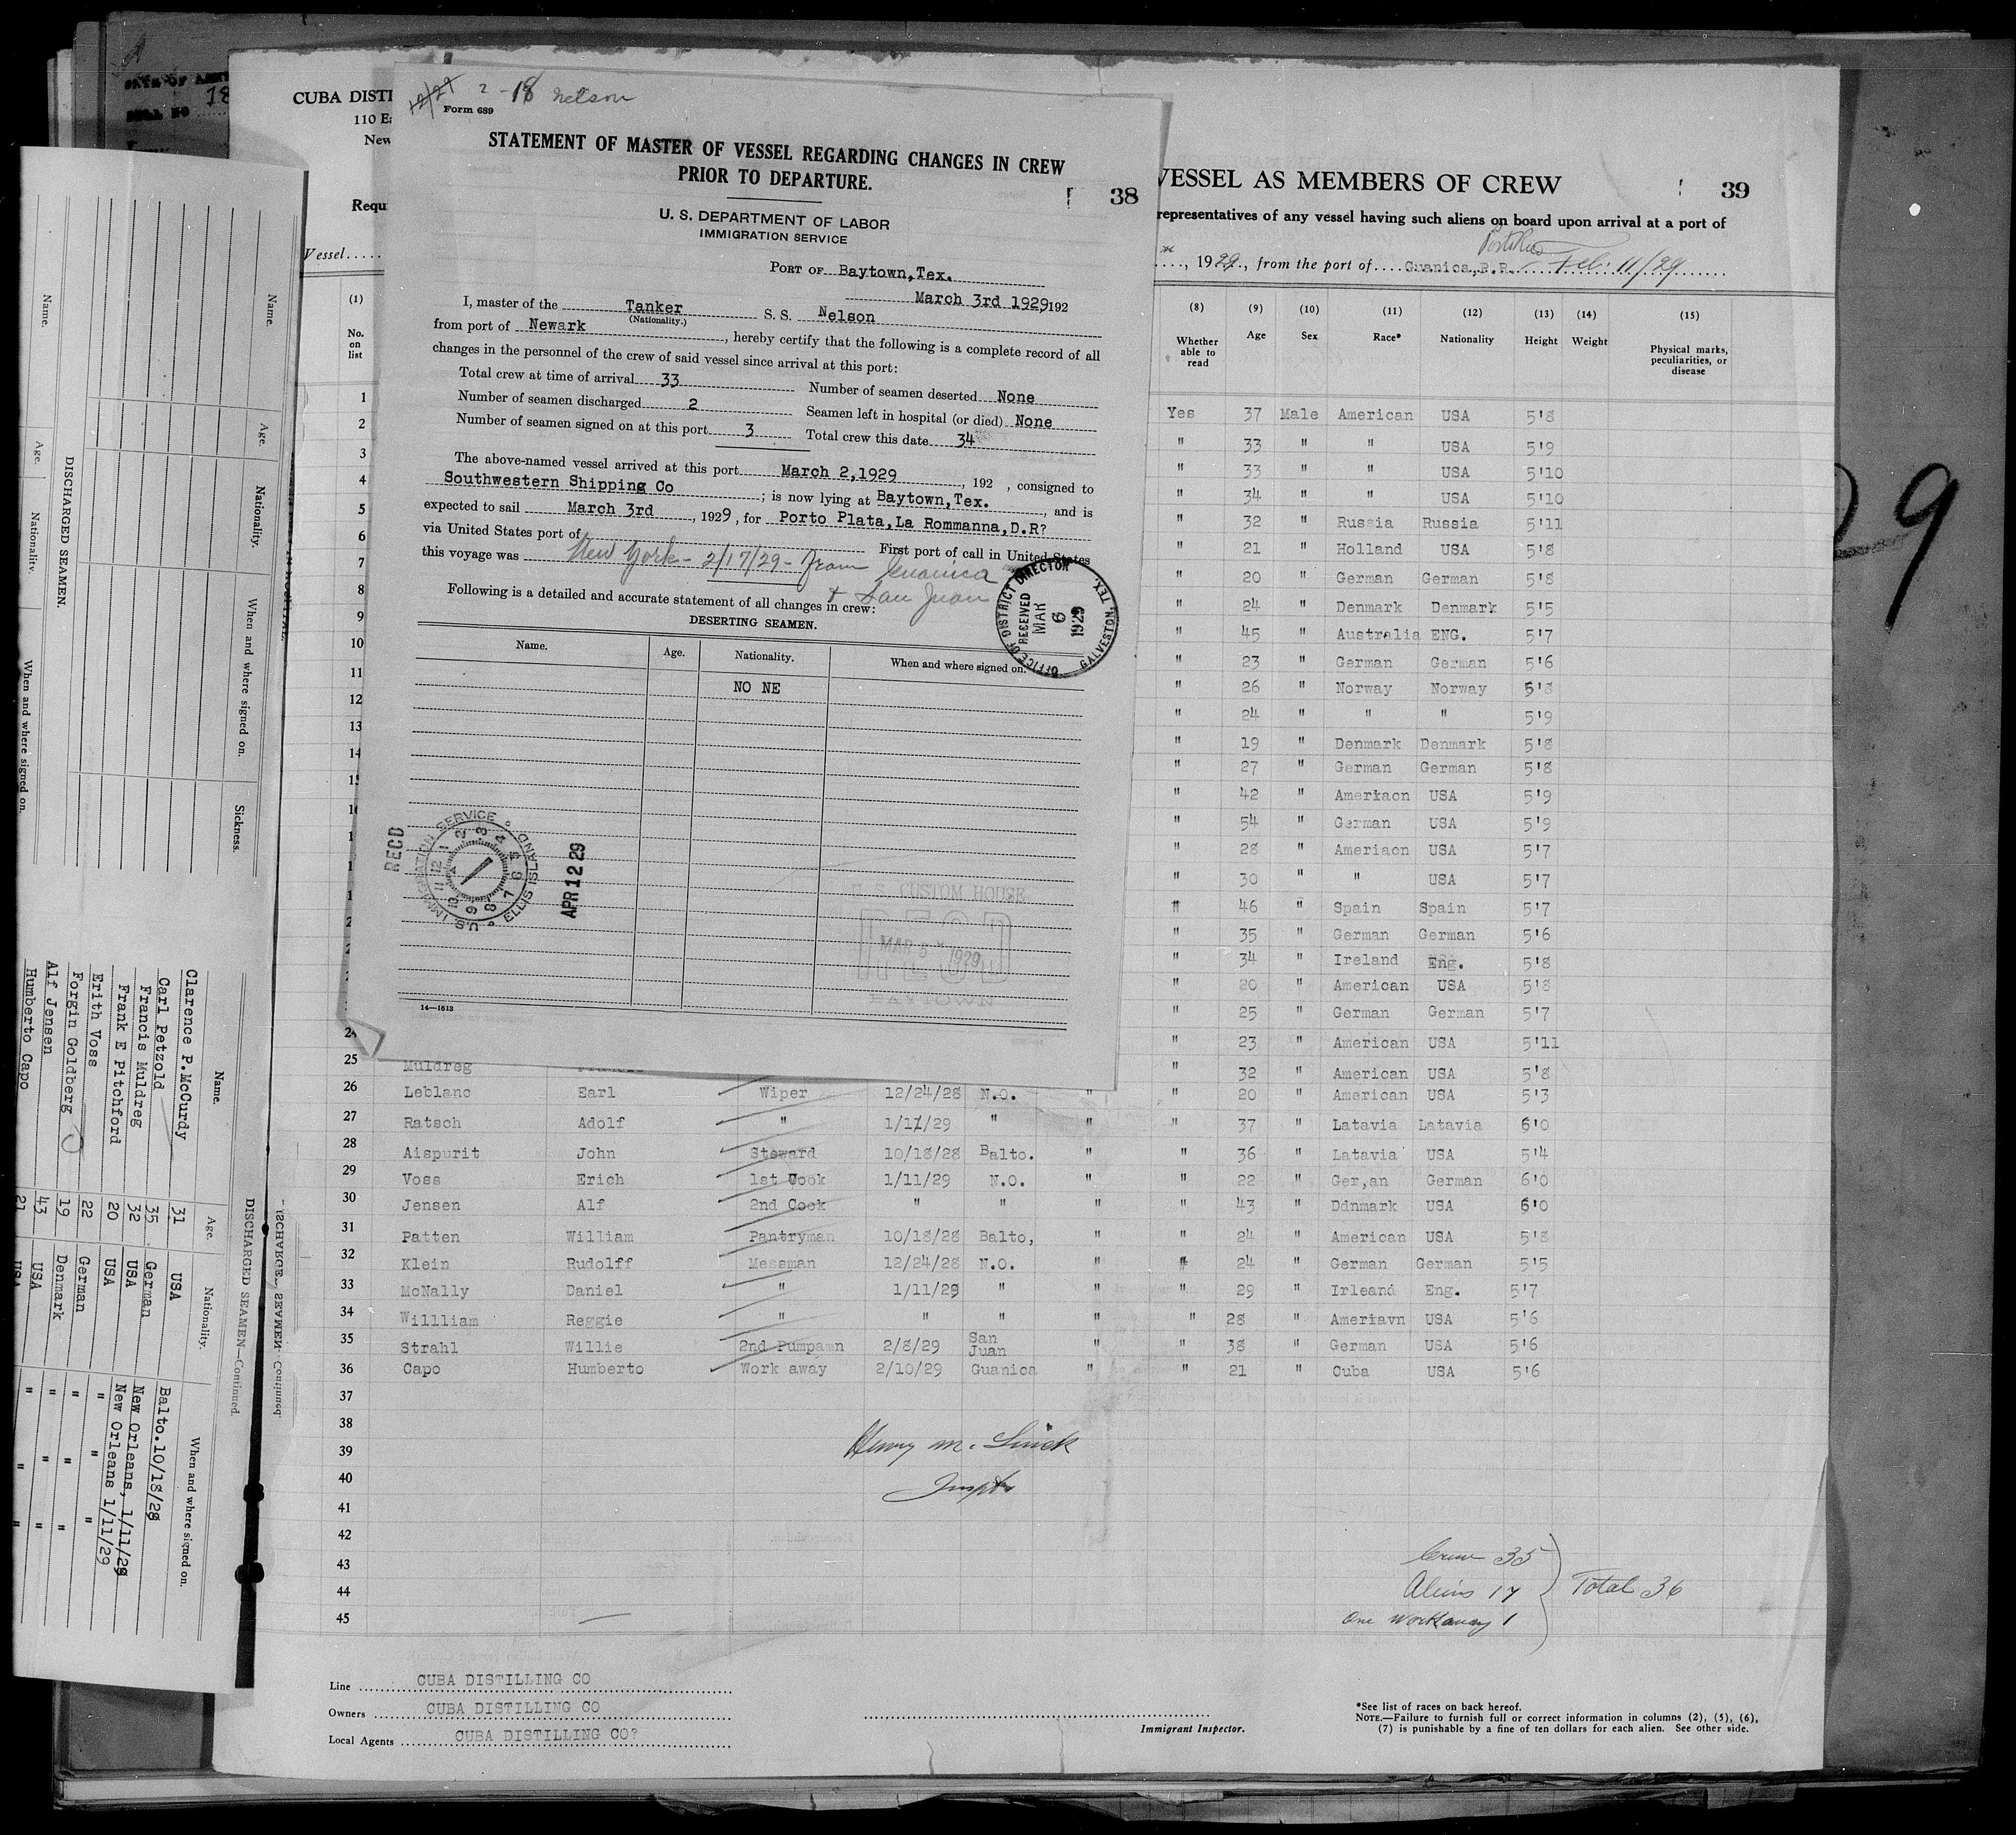 DATE OF
18
CUBA DISTI
110 Ea
New
Requ
Vessel
(1)
No.
on
list
12/29 2-18 Nelson
Form 689
STATEMENT OF MASTER OF VESSEL REGARDING CHANGES IN CREW
PRIOR TO DEPARTURE.
38
U. S. DEPARTMENT OF LABOR
IMMIGRATION SERVICE
PORT OF Baytown,Tex.
March 3rd 1929,192
I, master of the Tanker S. S. Nelson
(Nationality.)
from port of Newark, hereby certify that the following is a complete record of all
changes in the personnel of the crew of said vessel since arrival at this port:
Total crew at time of arrival 33 Number of seamen deserted None
Number of seamen discharged 2 Seamen left in hospital (or died) None
Number of seamen signed on at this port 3 Total crew this date 34
The above-named vessel arrived at this port March 2,1929, 192 , consigned to
Southwestern Shipping Co; is now lying at Baytown,Tex., and is
expected to sail March 3rd, 1929, for Porto Plata,La Rommanna,D.R?
via United States port of First port of call in United States
this voyage was New York - 2/17/29 - from Guanica
+ San Juan
Following is a detailed and accurate statement of all changes in crew:
DESERTING SEAMEN.
Name. Age. Nationality. When and where signed on.
NO NE
OFFICE OF DISTRICT DIRECTOR
RECEIVED
MAR
6
1929
GALVESTON, TEX.
RECD
U.S. IMMIGRATION SERVICE
ELLIS ISLAND
APR 12 29
U. S. CUSTOM HOUSE
RECD
MAR 5 1929
BAYTOWN
14—1613
VESSEL AS MEMBERS OF CREW
39
representatives of any vessel having such aliens on board upon arrival at a port of
Porto Rico
, 1929., from the port of Guanica,P.R. Feb 11/29
(8) (9) (10) (11) (12) (13) (14) (15)
Whether able to read Age Sex Race* Nationality Height Weight Physical marks, peculiarities, or disease
1 Yes 37 Male American USA 5'8
2 " 33 " " USA 5'9
3 " 33 " " USA 5'10
4 " 34 " " USA 5'10
5 " 32 " Russia Russia 5'11
6 " 21 " Holland USA 5'8
7 " 20 " German German 5'8
8 " 24 " Denmark Denmark 5'5
9 " 45 " Australia ENG. 5'7
10 " 23 " German German 5'6
11 " 26 " Norway Norway 5'8
12 " 24 " " " 5'9
13 " 19 " Denmark Denmark 5'8
14 " 27 " German German 5'8
15 " 42 " Amerkacn USA 5'9
" 54 " German USA 5'9
" 28 " Ameriacn USA 5'7
" 30 " " USA 5'7
" 46 " Spain Spain 5'7
" 35 " German German 5'6
" 34 " Ireland Eng. 5'8
" 20 " American USA 5'8
" 25 " German German 5'7
24 " 23 " American USA 5'11
25 Muldreg " 32 " American USA 5'8
26 Leblanc Earl Wiper 12/24/28 N.O. " " 20 " American USA 5'3
27 Ratsch Adolf " 1/11/29 " " " 37 " Latavia Latavia 6'0
28 Aispurit John Steward 10/18/28 Balto. " " 36 " Latavia USA 5'4
29 Voss Erich 1st Cook 1/11/29 N.O. " " 22 " Ger,an German 6'0
30 Jensen Alf 2nd Cook " " " " 43 " Ddnmark USA 6'0
31 Patten William Pantryman 10/18/28 Balto, " " 24 " American USA 5'8
32 Klein Rudolff Messman 12/24/28 N.O. " " 24 " German German 5'5
33 McNally Daniel " 1/11/29 " " " 29 " Irleand Eng. 5'7
34 Willliam Reggie " " " " " 28 " Ameriavn USA 5'6
35 Strahl Willie 2nd Pumpamn 2/8/29 San Juan " " 38 " German USA 5'6
36 Capo Humberto Work away 2/10/29 Guanica " " 21 " Cuba USA 5'6
37
38
39
40
41
42
43
44
45
Henry M.
Inspt
Crew 35
Aliens 17
One Workaway 1
Total 36
Line CUBA DISTILLING CO
Owners CUBA DISTILLING CO
Local Agents CUBA DISTILLING CO?
Immigrant Inspector.
*See list of races on back hereof.
NOTE.—Failure to furnish full or correct information in columns (2), (5), (6),
(7) is punishable by a fine of ten dollars for each alien. See other side.
29
Name. Age. Nationality. When and where signed on. Sickness.
DISCHARGED SEAMEN.
Name. Age. Nationality. When and where signed on.
DISCHARGED SEAMEN—Continued.
Name. Age. Nationality. When and where signed on.
Clarence P.McCurdy 31 USA Balto.10/18/28
Carl Petzold 35 German
Francis Muldreg 32 USA New Orleans, 1/11/28
Frank E Pitchford 20 USA New Orleans 1/11/29
Erith Voss 22 German " "
Forgin Goldberg 19 Denmark " " "
Alf Jensen 43 USA " " "
Humberto Capo 21 USA " " "